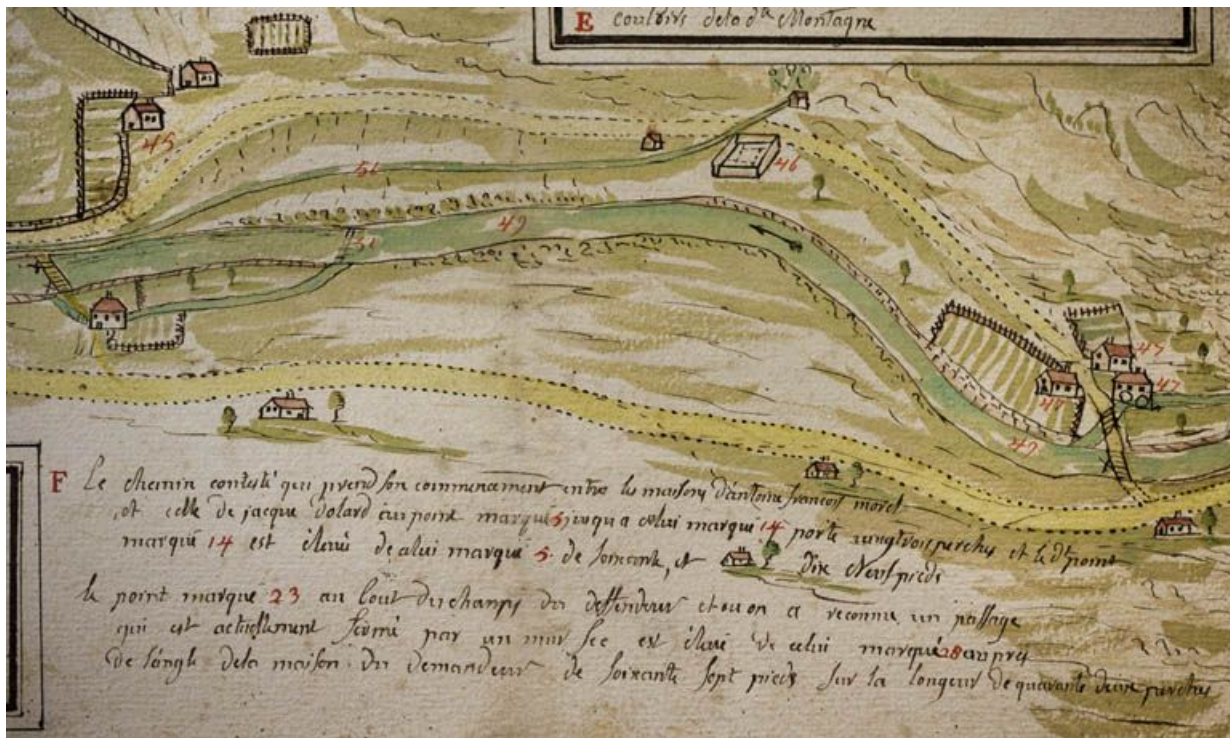 E couloirs dela dte Montagne
45
51
46
49
51
45
47
48
49
F Le chemin contesté qui prend son commencement entre les maisons d'antoine françois morel
et celle de jacque dolard au point marqué 5 jusqu a celui marqué 14 porte vingt trois perches et le dt point
marqué 14 est élevé de celui marqué 5 de soixante, et Dix Neuf pieds
le point marqué 23 au bout du champs du deffendeur et ou on a reconnu un passage
qui est actuellement fermé par un mur sec est élevé de celui marqué 28 au pres
de l'angle dela maison du demandeur de soixante sept pieds sur la longeur de quarante deux perches